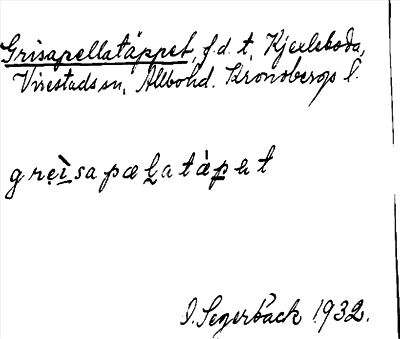 Grisapellatäppet, f.d. t. Kjexleboda,
Virestads sn, Allbohd. Kronobergs l.
greìsapæl̲atäp̲et
I. Segerbäck 1932.